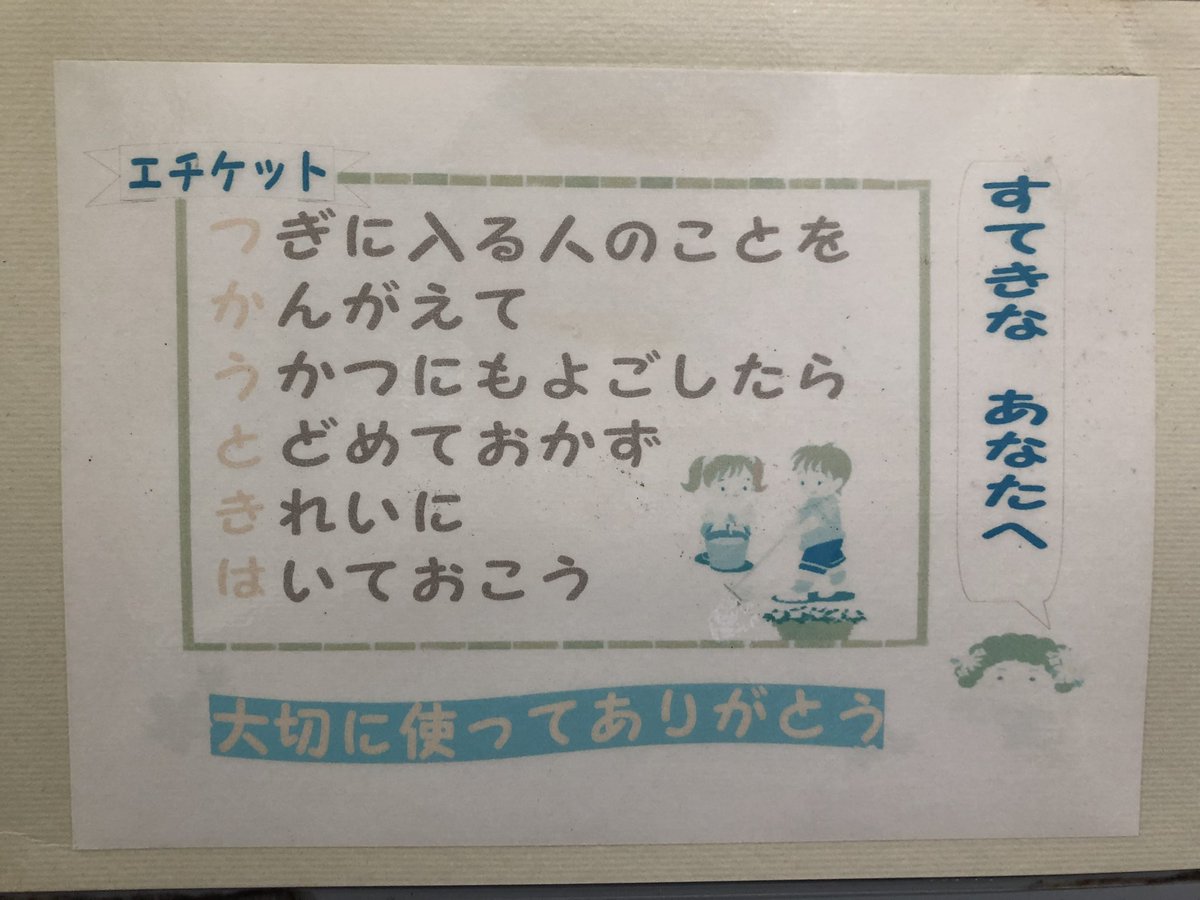 エチケット
つぎに入る人のことを
かんがえて
うかつにもよごしたら
とどめておかず
きれいに
はいておこう
すてきな あなたへ
大切に使ってありがとう